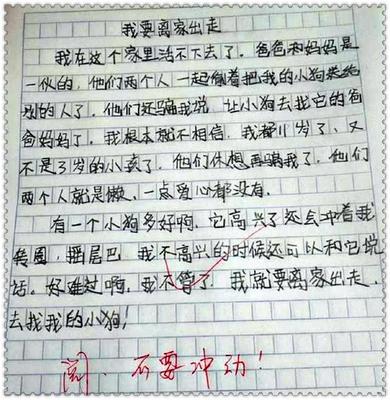 我要离家出走
我在这个家里活不下去了。爸爸和妈妈是
一伙的，他们两个人一起偷着把我的小狗卖给
别的人了，他们还骗我说，让小狗去找它的爸
爸妈妈了，我根本就不相信，我都11岁了，又
不是3岁的小孩了，他们休想再骗我了，他们
两个人就是懒，一点爱心都没有。
有一个小狗多好啊，它高兴了还会冲着我
转圈，摇尾巴，我不高兴的时候还可以和它说
话。好难过啊，我不管了，我就要离家出走，
去找我的小狗！
阅．不要冲动！